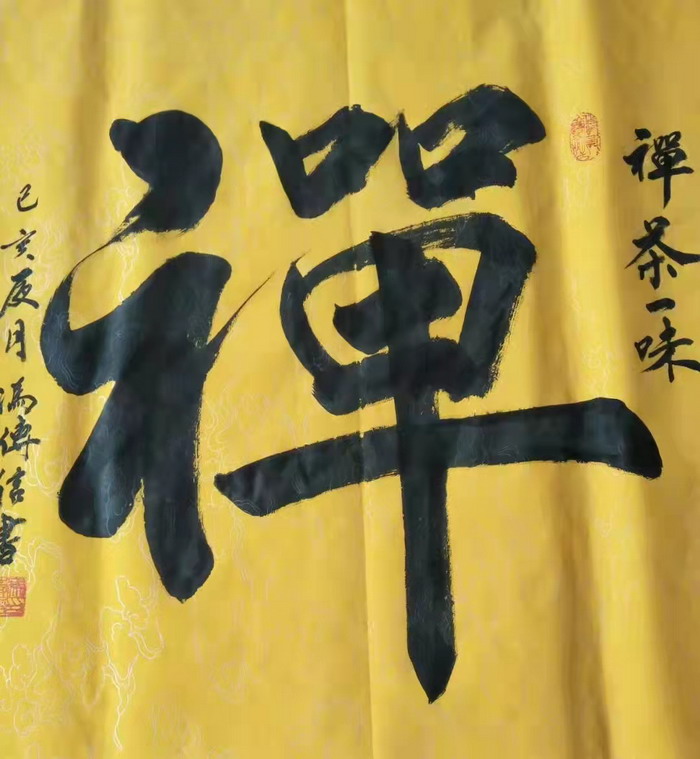 禪茶一味
禪
己亥辰月馮傳信書